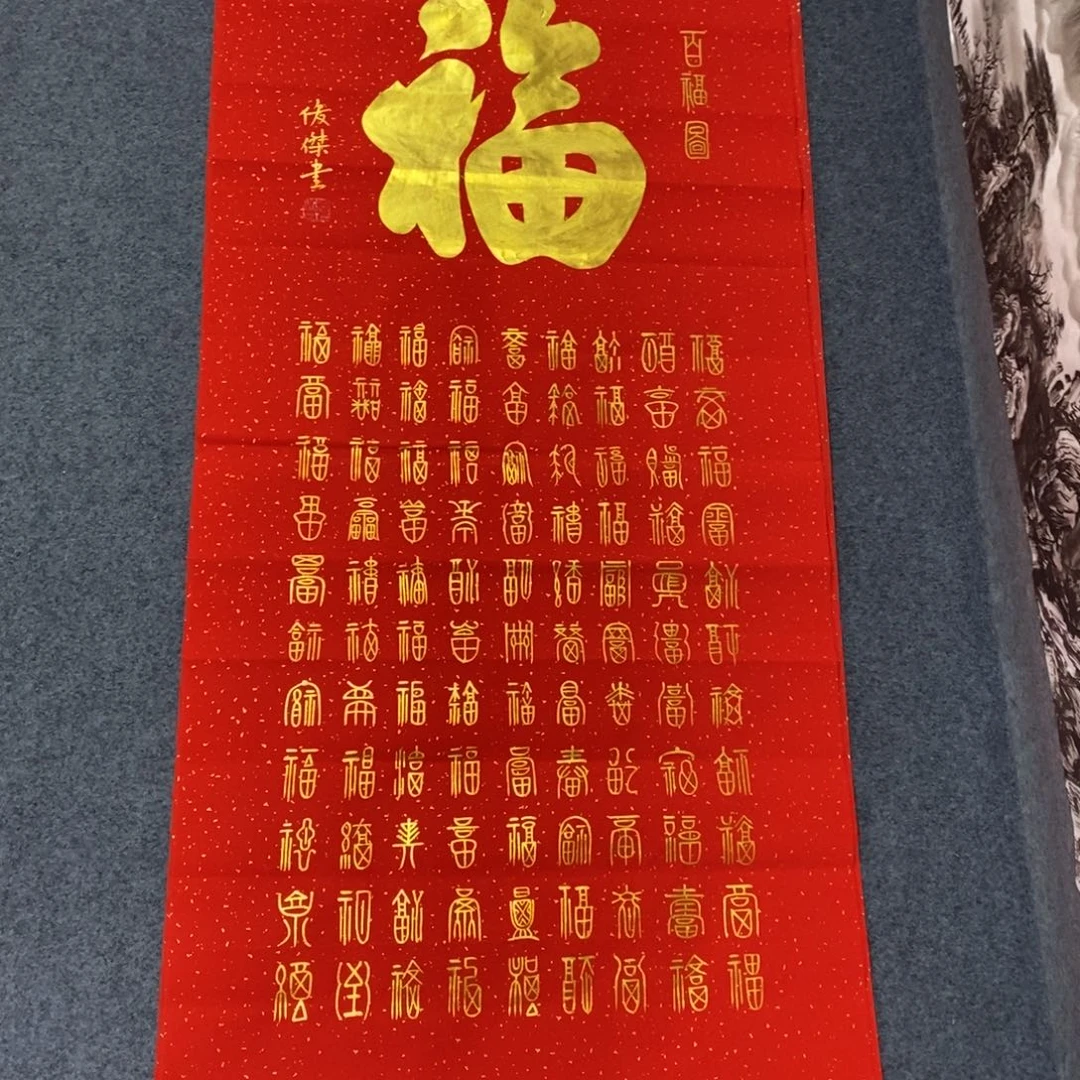 百福圖
福
俊傑書
福福福福福福福福福福福
福福福福福福福福福福福
福福福福福福福福福福福
福福福福福福福福福福福
福福福福福福福福福福福
福福福福福福福福福福福
福福福福福福福福福福福
福福福福福福福福福福福
福福福福福福福福福福福